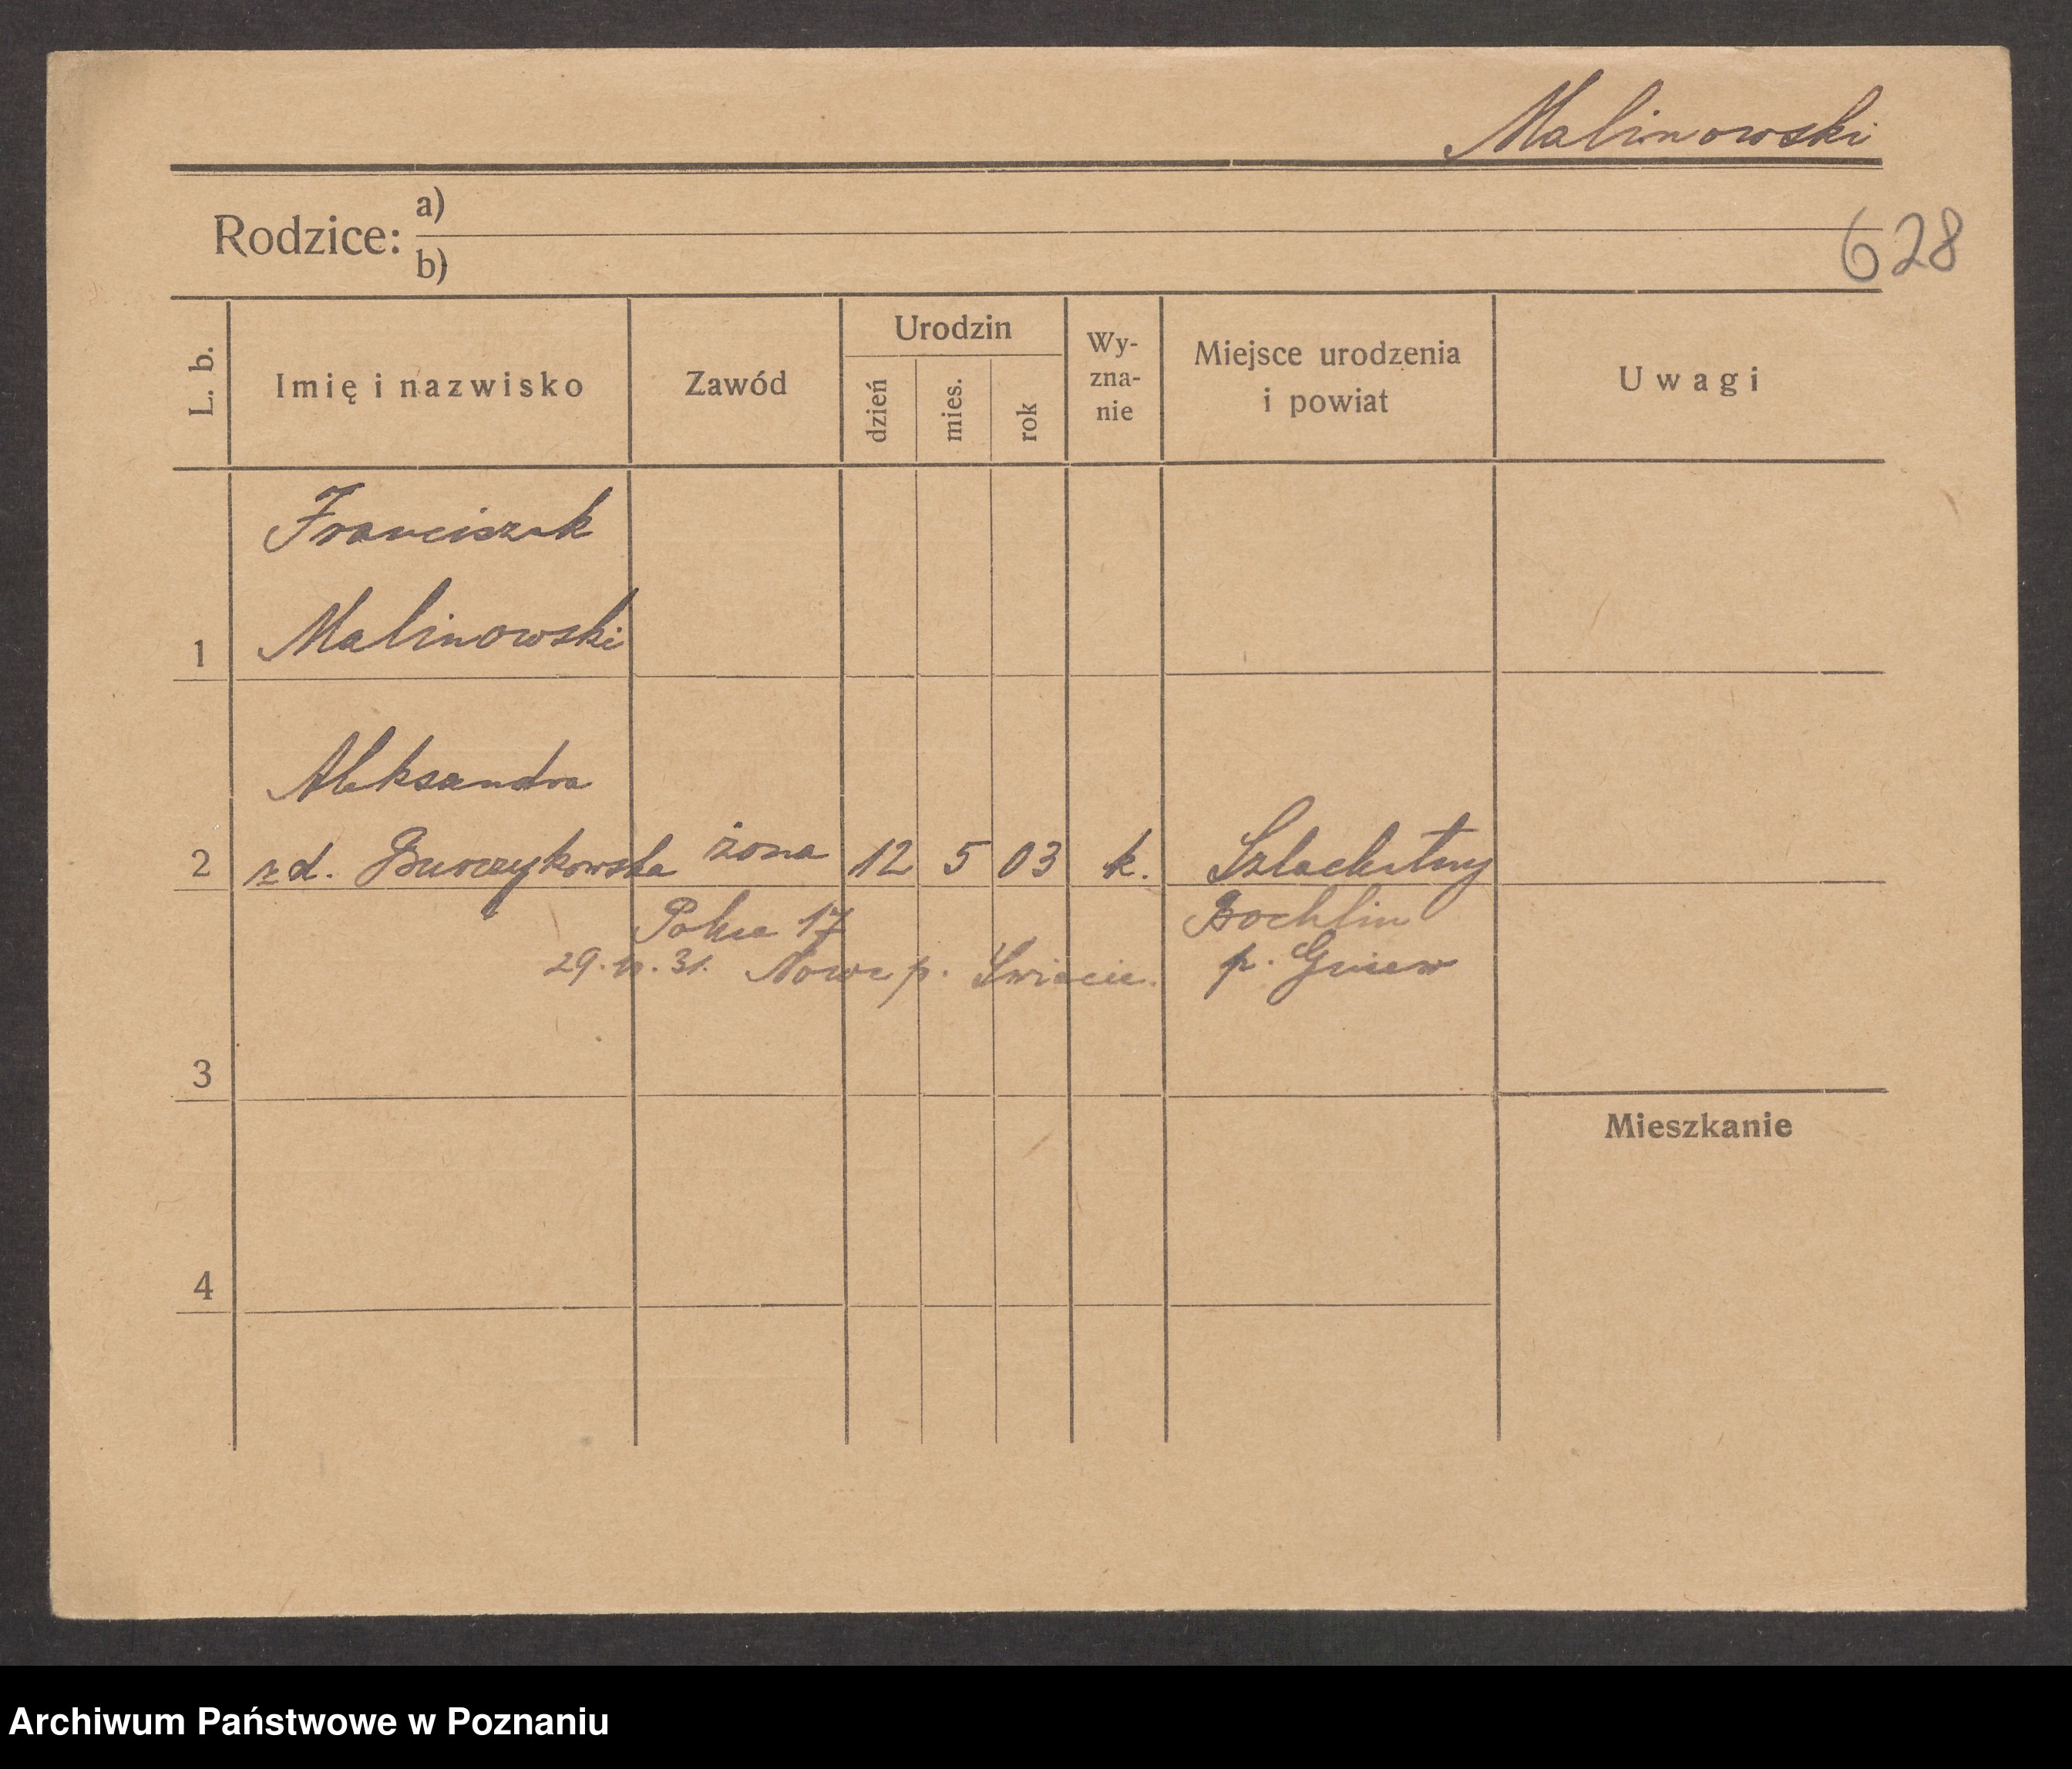 Malinowski
Rodzice:
a)
b)
628
L. b.
Imię i nazwisko
Zawód
Urodzin
dzień
mies.
rok
Wy-
zna-
nie
Miejsce urodzenia
i powiat
Uwagi
Franciszek
1 Malinowski
Aleksandra
2 zd. Burczykowska żona 12 5 03 k. Szlachetny
Polna 17 Bochlin
31. Nowe p. Świecie. p. Gniew
3
Mieszkanie
4
Archiwum Państwowe w Poznaniu